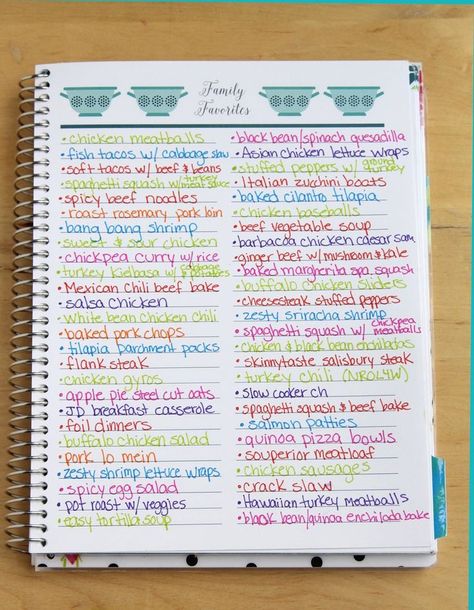 Family
Favorites
• chicken meatballs
• fish tacos w/ cabbage slaw
• soft tacos w/ beef & beans
• spaghetti squash w/ turkey meat sauce
• spicy beef noodles
• roast rosemary pork loin
• bang bang shrimp
• sweet & sour chicken
• chickpea curry w/ rice
• turkey kielbasa w/ cabbage & potatoes
• Mexican Chili beef bake
• salsa chicken
• white bean chicken chili
• baked pork chops
• tilapia parchment packs
• flank steak
• chicken gyros
• apple pie steel cut oats
• JD breakfast casserole
• foil dinners
• buffalo chicken salad
• pork lo mein
• zesty shrimp lettuce wraps
• spicy egg salad
• pot roast w/ veggies
• easy tortilla soup
• black bean/spinach quesadilla
• Asian chicken lettuce wraps
• stuffed peppers w/ ground turkey
• Italian zucchini boats
• baked cilantro tilapia
• chicken baseballs
• beef vegetable soup
• barbacoa chicken caesar sam.
• ginger beef w/ mushroom & kale
• baked margherita spa. squash
• buffalo chicken sliders
• cheesesteak stuffed peppers
• zesty sriracha shrimp
• spaghetti squash w/ chickpea meatballs
• chicken & black bean enchiladas
• skinnytaste salisbury steak
• turkey chili (NROL4W)
• slow cooker ch
• spaghetti squash & beef bake
• salmon patties
• quinoa pizza bowls
• souperior meatloaf
• chicken sausages
• crack slaw
• Hawaiian turkey meatballs
• black bean/quinoa enchilada bake